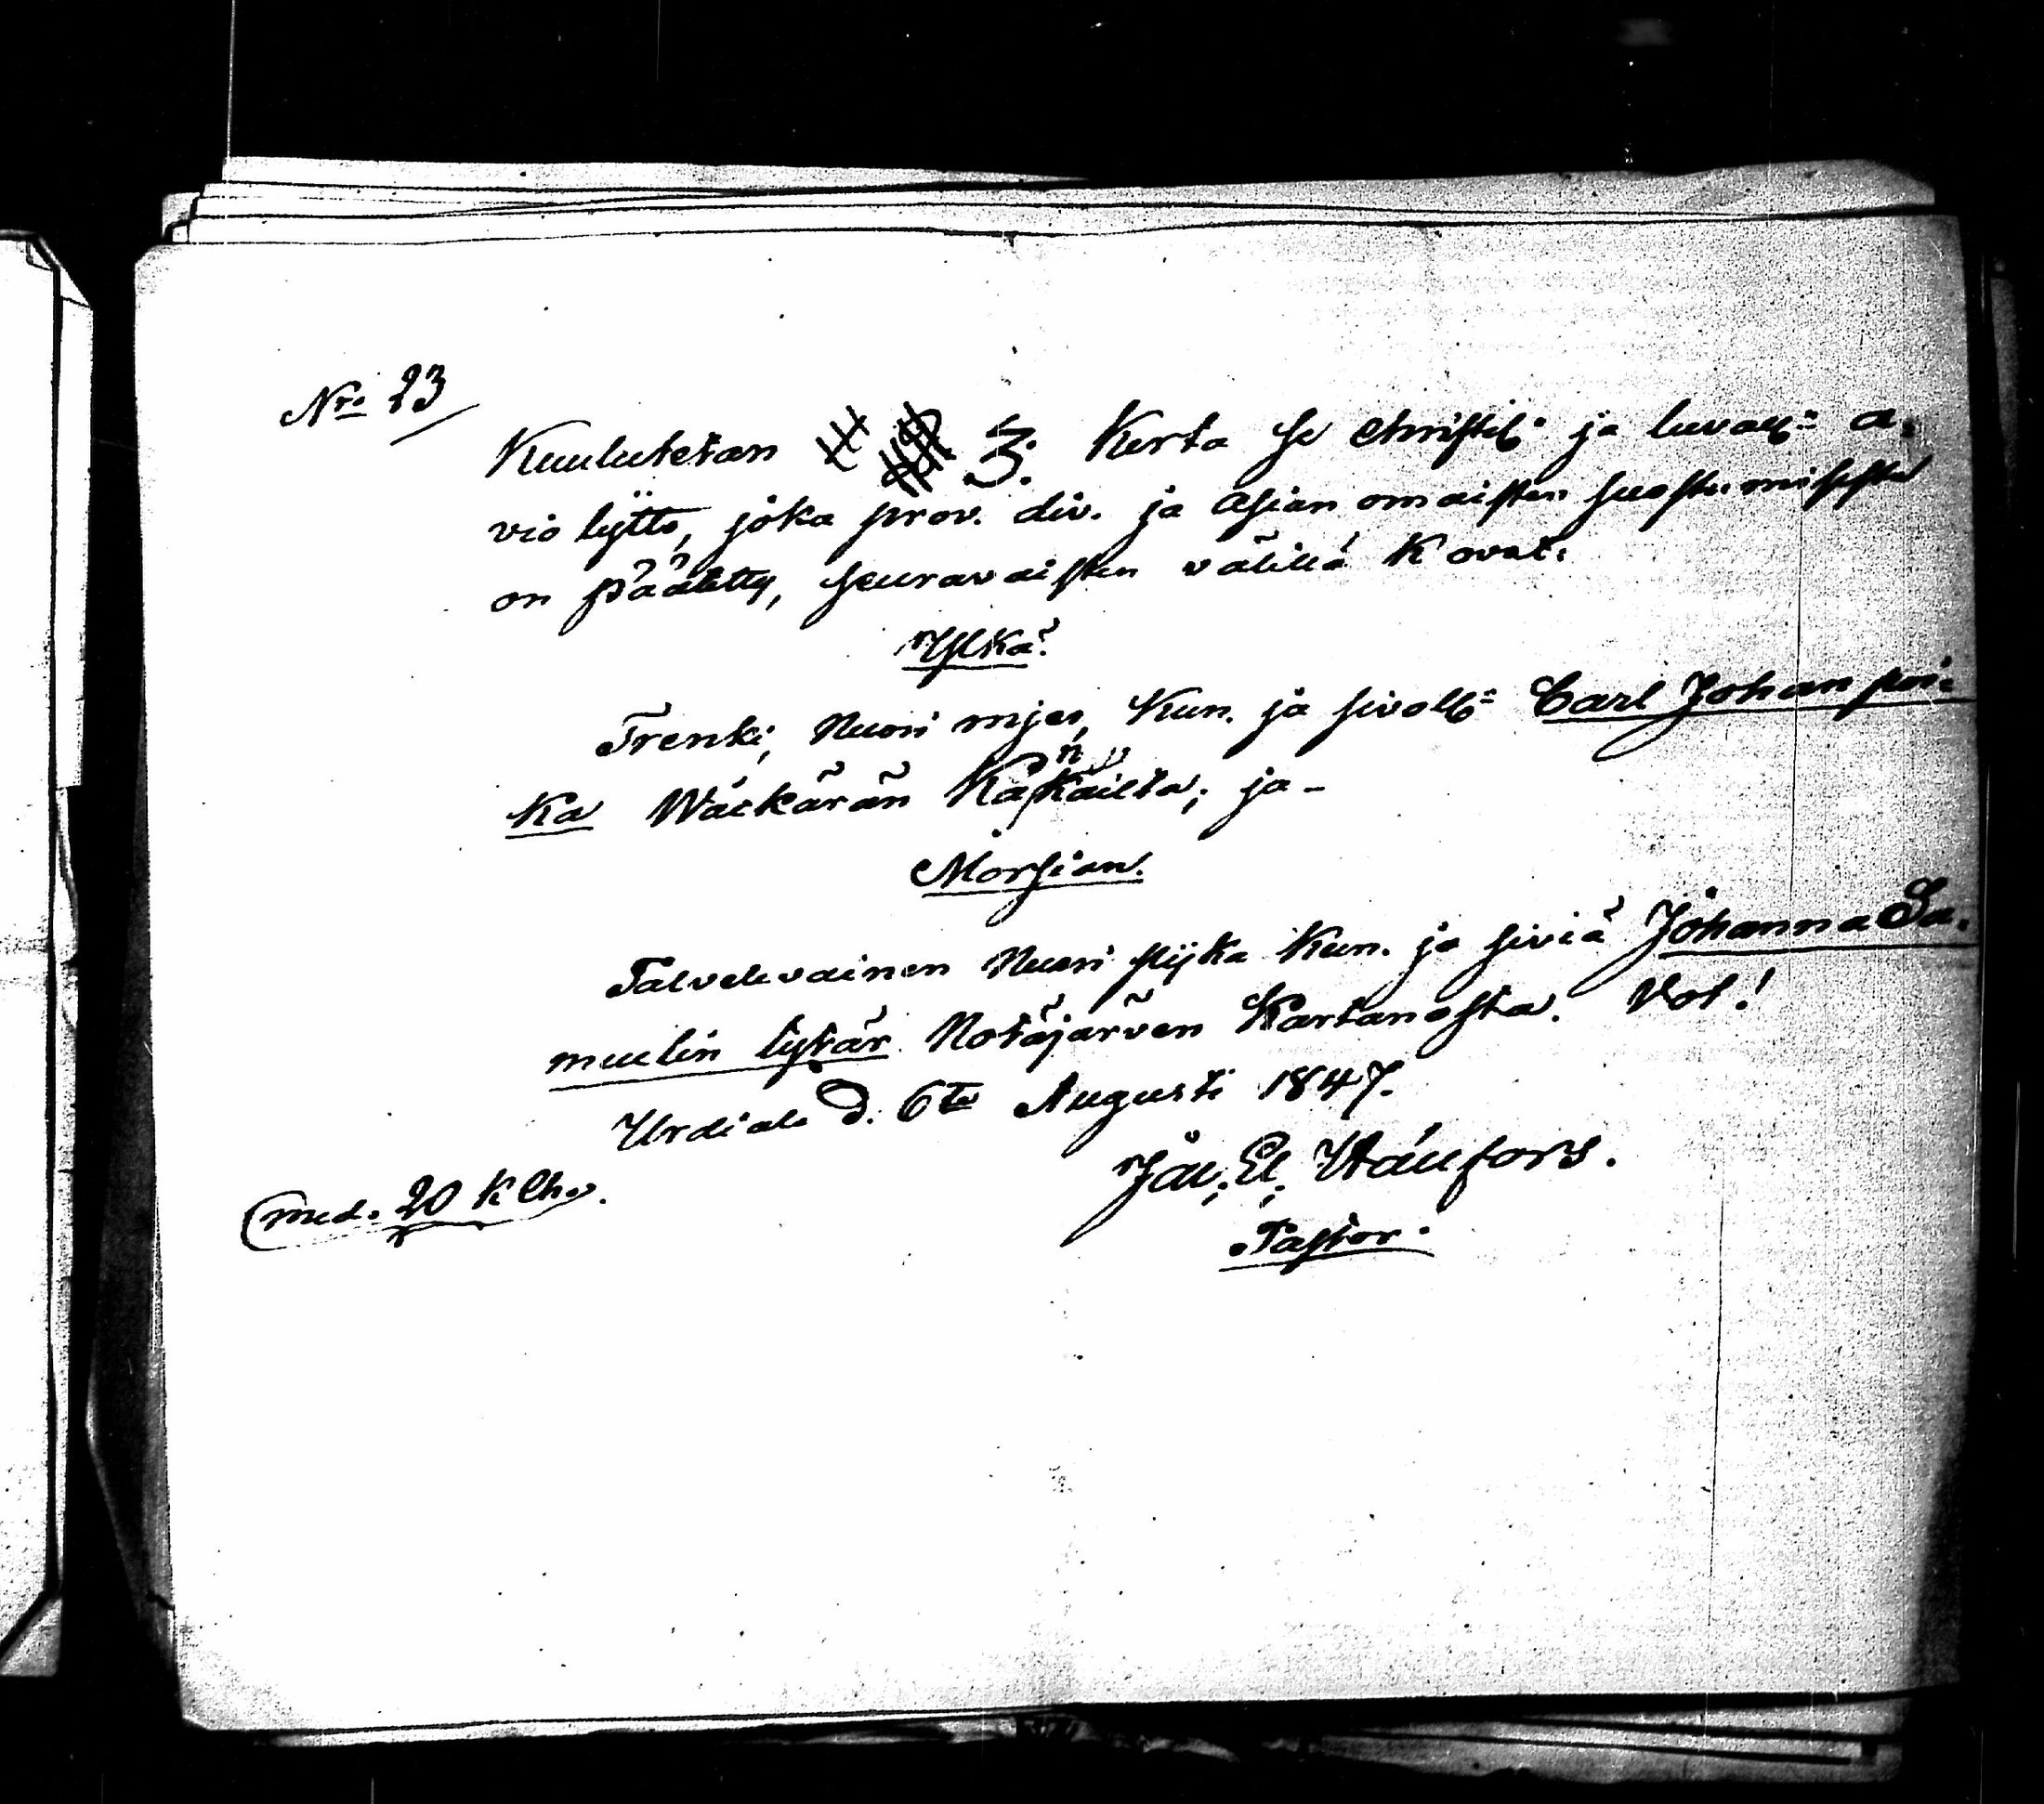 Nr. 23
Kuulutetan 3. Kerta se christil: ja luvall: a:
vio lijtto, joka prov. div. ja asian omaisten suostumisesta
on päätetty, seuravaisten välillä K ovat:
Ylkä.
Trenki, Nuori mjes, Kun. ja sivoll: Carl Johan poi:
ka Wäckärän ; ja -
Morsian.
Palvelevainen Nuori pijka Kun. ja siviä Johanna Sa:
muelin tytär Notäjärven Kartanosta. Vot!
Urdiala d. 6te Augusti 1847.
Pastor.
med. 20 K